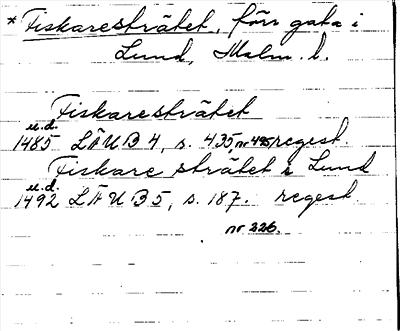 * Fiskaresträtet, förr gata i
Lund, Malm. l.
Fiskaresträtet
u.d.
1485 LÄUB 4, s. 435, nr 495 regest.
Fiskare strätet i Lund
u.d.
1492 LÄUB 5, s. 187. regest
nr 226.